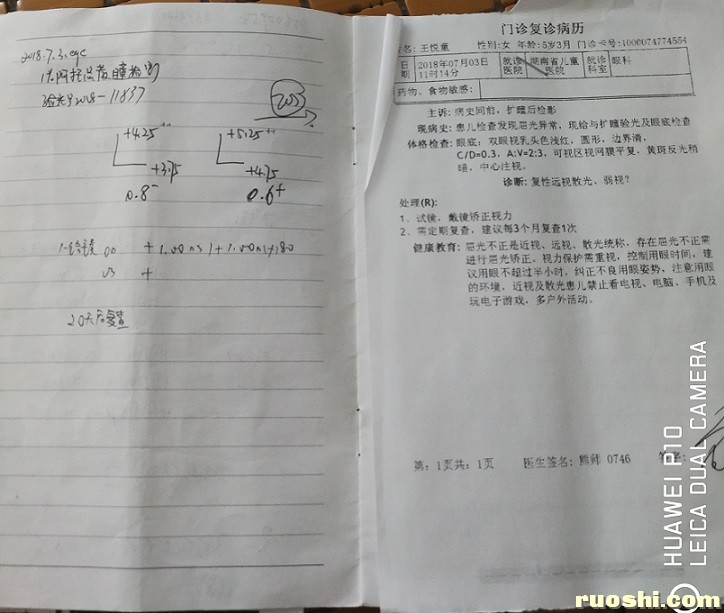 2018.7.3
+4.25
+5.25
+3.75
+4.75
0.8⁻
0.6⁺
20天后复查
门诊复诊病历
名：王悦童 性别：女 年龄：5岁3月 门诊卡号：1000074774554
日期 2018年07月03日 11时14分 就诊医院 湖南省儿童医院 就诊科室 眼科
药物、食物敏感：
主诉：病史同前，扩瞳后检影
现病史：患儿检查发现屈光异常，现给与扩瞳验光及眼底检查
体格检查：眼底：双眼视乳头色浅红，圆形，边界清，
C/D=0.3，A:V=2:3，可视区视网膜平复，黄斑反光稍
暗，中心注视。
诊断：复性远视散光、弱视？
处理(R)：
1、试镜，戴镜矫正视力
2、需定期复查，建议每3个月复查1次
健康教育：屈光不正是近视、远视、散光统称，存在屈光不正需
进行屈光矫正。视力保护需重视，控制用眼时间，建
议用眼不超过半小时，纠正不良用眼姿势，注意用眼
的环境，近视及散光患儿禁止看电视、电脑、手机及
玩电子游戏，多户外活动。
第：1页共：1页 医生签名：熊师 0746
HUAWEI P10
LEICA DUAL CAMERA
ruoshi.com